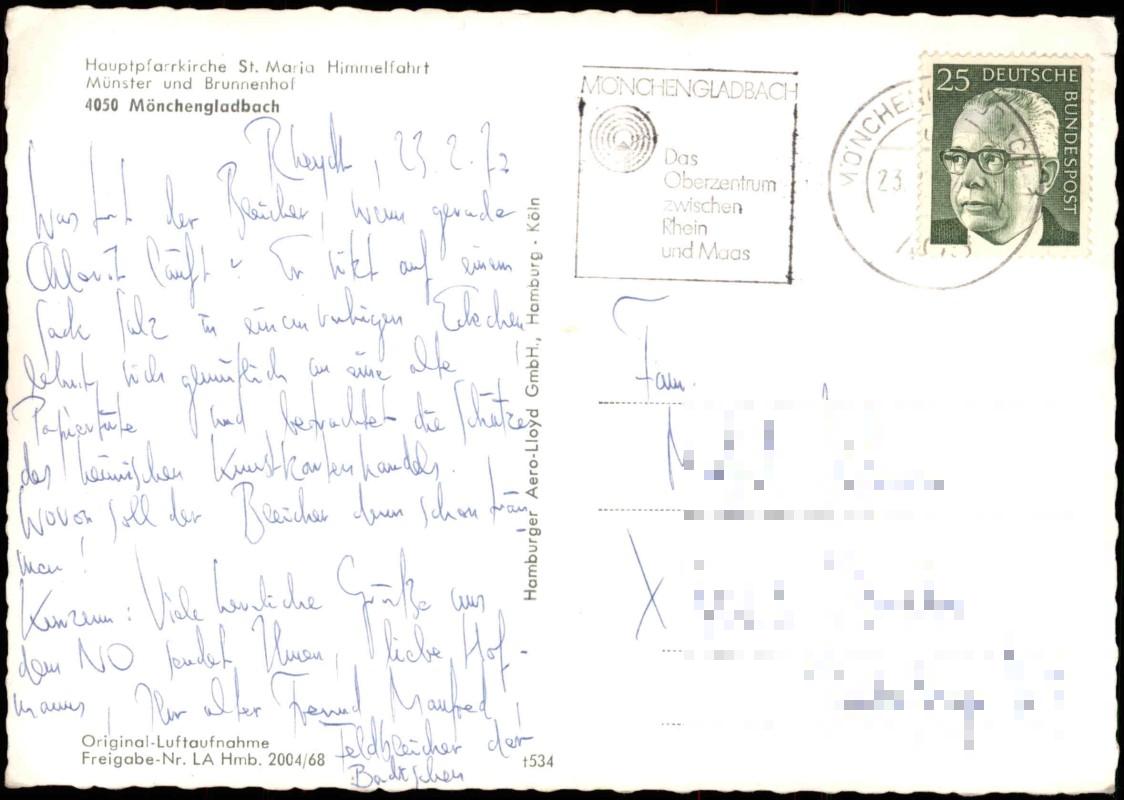 Hauptpfarrkirche St. Maria Himmelfahrt
Münster und Brunnenhof
4050 Mönchengladbach
Rheydt, 23.2.72
Was tut der Bleicher, wenn gerade
Chlorit läuft? Er sitzt auf einem
Sack Salz in einem ruhigen Eckchen,
lehnt sich gemütlich an eine alte
Papiertüte und betrachtet die Schätze
des heimischen Kunstkartenhandels.
Wovon soll der Bleicher denn schon träu-
men!
Kurzum: Viele herzliche Grüße aus
dem NO sendet Ihnen, liebe Hof-
manns, Ihr alter Freund Manfred,
Feldbleicher der
Badischen
Original-Luftaufnahme
Freigabe-Nr. LA Hmb. 2004/68
t534
Hamburger Aero-Lloyd GmbH., Hamburg - Köln
MÖNCHENGLADBACH
Das
Oberzentrum
zwischen
Rhein
und Maas
23.
25 DEUTSCHE
BUNDESPOST
Fam.